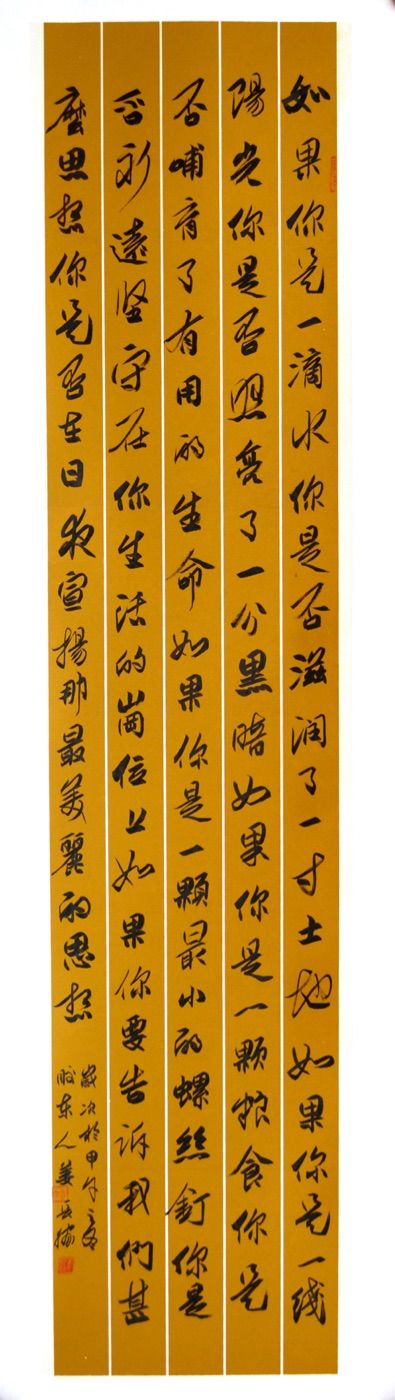 如果你是一滴水你是否滋润了一寸土地如果你是一线
陽光你是否照亮了一分黑暗如果你是一顆粮食你是
否哺育了有用的生命如果你是一顆最小的螺絲釘你是
否永遠坚守在你生活的崗位上如果你要告訴我們甚
麼思想你是否在日夜宣揚那最美麗的思想
歲次於甲午之
胶東人姜